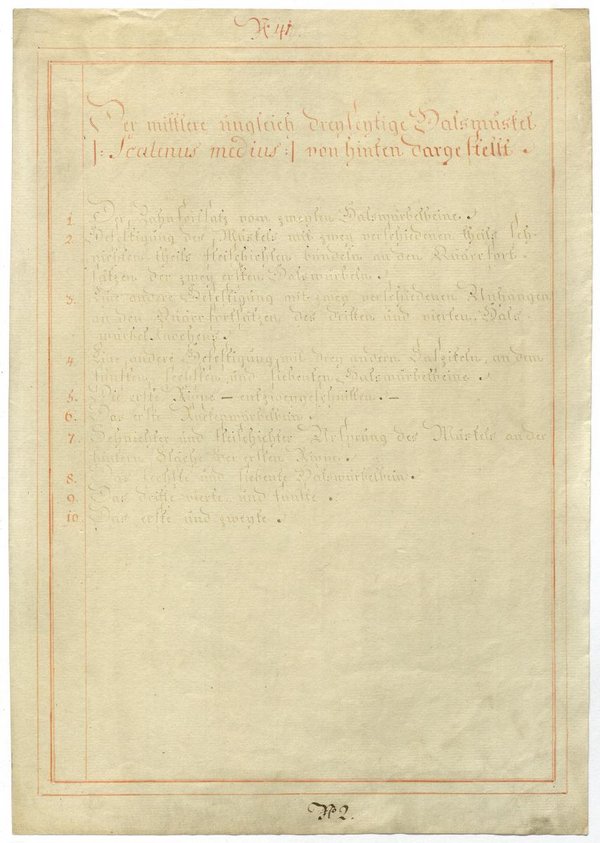 No 41.
Der mittlere ungleich dreyseytige Halsmuskel
|: Scalenus medius :| von hinten dargestellt.
1. Der Zahnfortsatz vom zweyten Halswürbelbeine.
2. Befestigung des Muskels mit zwey verschiedenen theils seh-
nichten theils fleischichten bündeln an den Queerfort-
sätzen der zwey ersten Halswürbeln.
3. Eine andere Befestigung mit zwey verschiedenen Anhängen
an den Queerfortsätzen des dritten und vierten Hals-
würbelknochens.
4. Eine andere Befestigung mit drey andern, an dem
fünften, sechsten und siebenten Halswürbelbeine.
5. Die erste Rippe – entzweygeschnitten. –
6. Das erste Rückenwürbelbein.
7. Sehnichter und fleischichter Ursprung des Muskels an der
hintern Fläche der ersten Rippe.
8. Das sechste und siebente Halswürbelbein.
9. Das dritte vierte und fünfte.
10. Das erste und zweyte.
No 2.